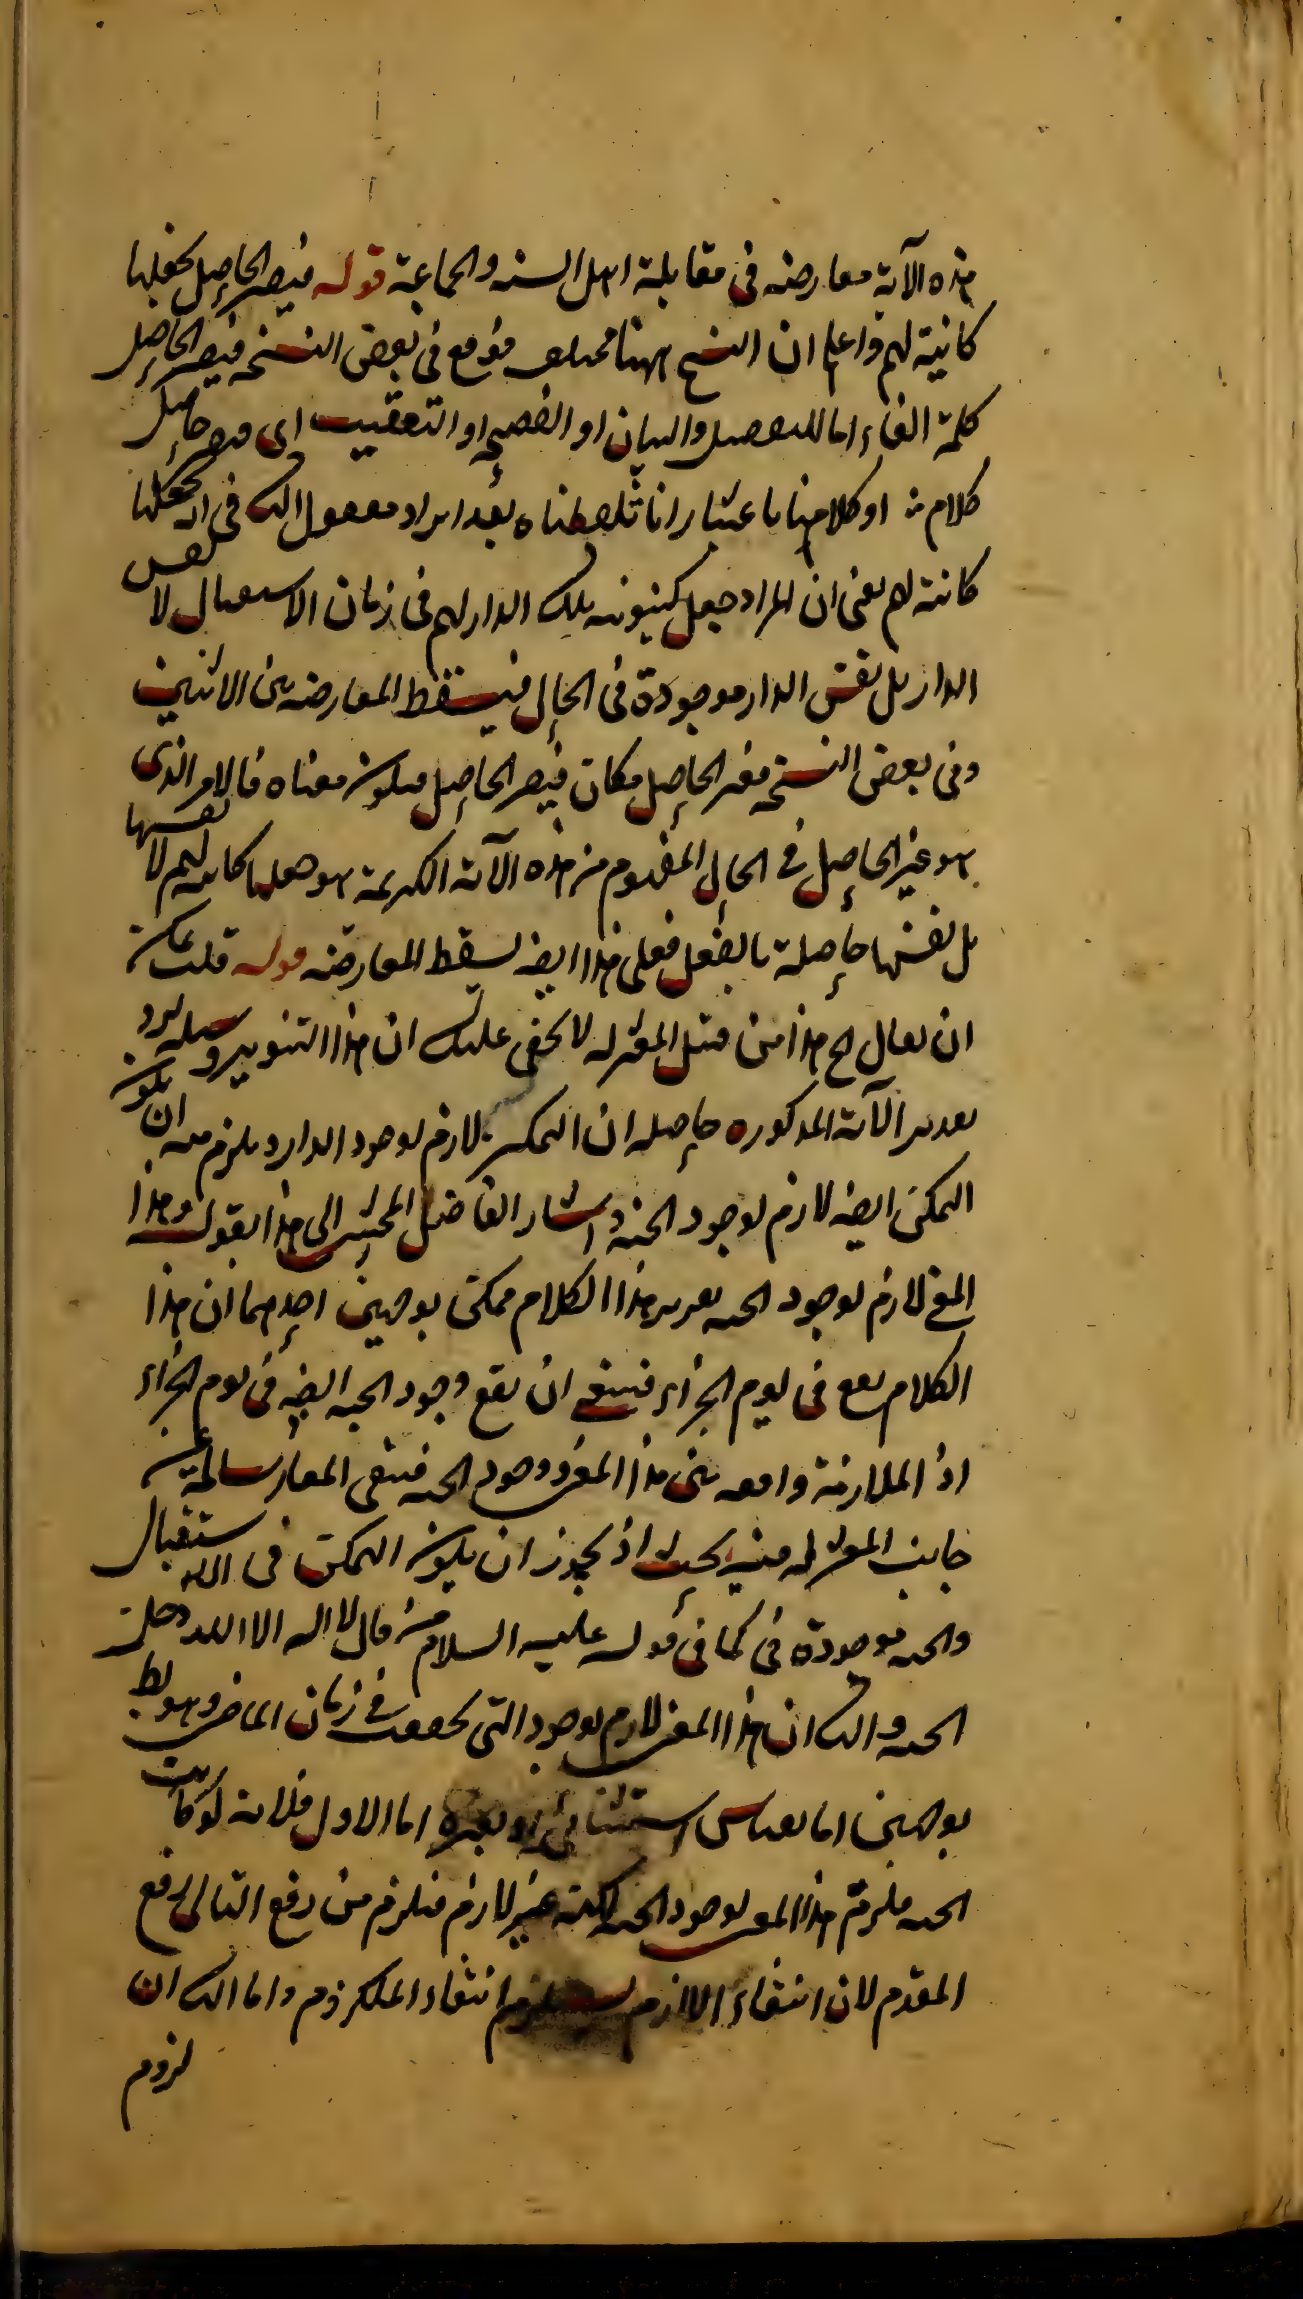 هذه الآية معارضه فى مقابلة اهل السنه والجماعة قوله فيصير الحاصل يجعلها
كائنة لهم واعلم ان النسخ ههنا مختلف فوقع فى بعض النسخه فيصير الحاصل
كلمة الفاء اما للتفصيل والبيان او الفصيحه او التعقيب اى فيصير حاصل
كلام او كلامنا باعتبار انا بعد ايراد مفعول الثا فى اى نجعلها
كائنة لهم يعنى ان المراد جعل كينونه تلك الدار لهم فى زمان الاستقبال لا نفس
الدار بل نفس الدار موجودة فى الحال فيسقط المعارضه بين الاثنين
وفى بعض النسخه فغير الحاصل مكان فيصير الحاصل فيكون معناه فالامر الذى
هو غير الحاصل فى الحال المفهوم من هذه الآية الكريمة هو جعلها كائنه لهم لا نفسها
بل نفسها حاصلة بالفعل فعلى هذا ايضه يسقط المعارضه قوله قلت يمكن
ان يقال الخ هذا من قبل المعتزله لا يخفى عليك ان هذا التنوير
الآية المذكوره حاصله ان التمكن لازم لوجود الدار ويلزم منه ان يكون
التمكن ايضه لازم لوجود الجنه واشار الفاضل المحشى الى هذا بقوله وهذا
المعنى لازم لوجود الجنه تقرير هذا الكلام ممكن بوجهين احدهما ان هذا
الكلام يقع فى يوم الجزاء فينبغى ان يقع وجود الجنه ايضه فى يوم الجزاء
اذ الملازمة واقعه بين هذا المعنى ووجود الجنه فبقى المعارضة سالمة عن
جانب المعتزله فيه بحث اذ يجوز ان يكون التمكن فى الاستقبال
والجنه موجودة فى كما فى قوله عليه السلام من قال لا اله الا الله دخل
الجنه والثا ان هذا المعنى لازم لوجود التى تحققت فى زمان الماضى وهو بط
بوجهين اما بقياس استثنائى او بغيره اما الاول فلانه لو كانت
الجنه ملزم هذا المعنى لوجود الجنه لكنه غير لازم فيلزم من رفع التالى رفع
المقدم لان انتفاء اللازم يستلزم انتفاء الملزوم واما الثا ان
لزوم